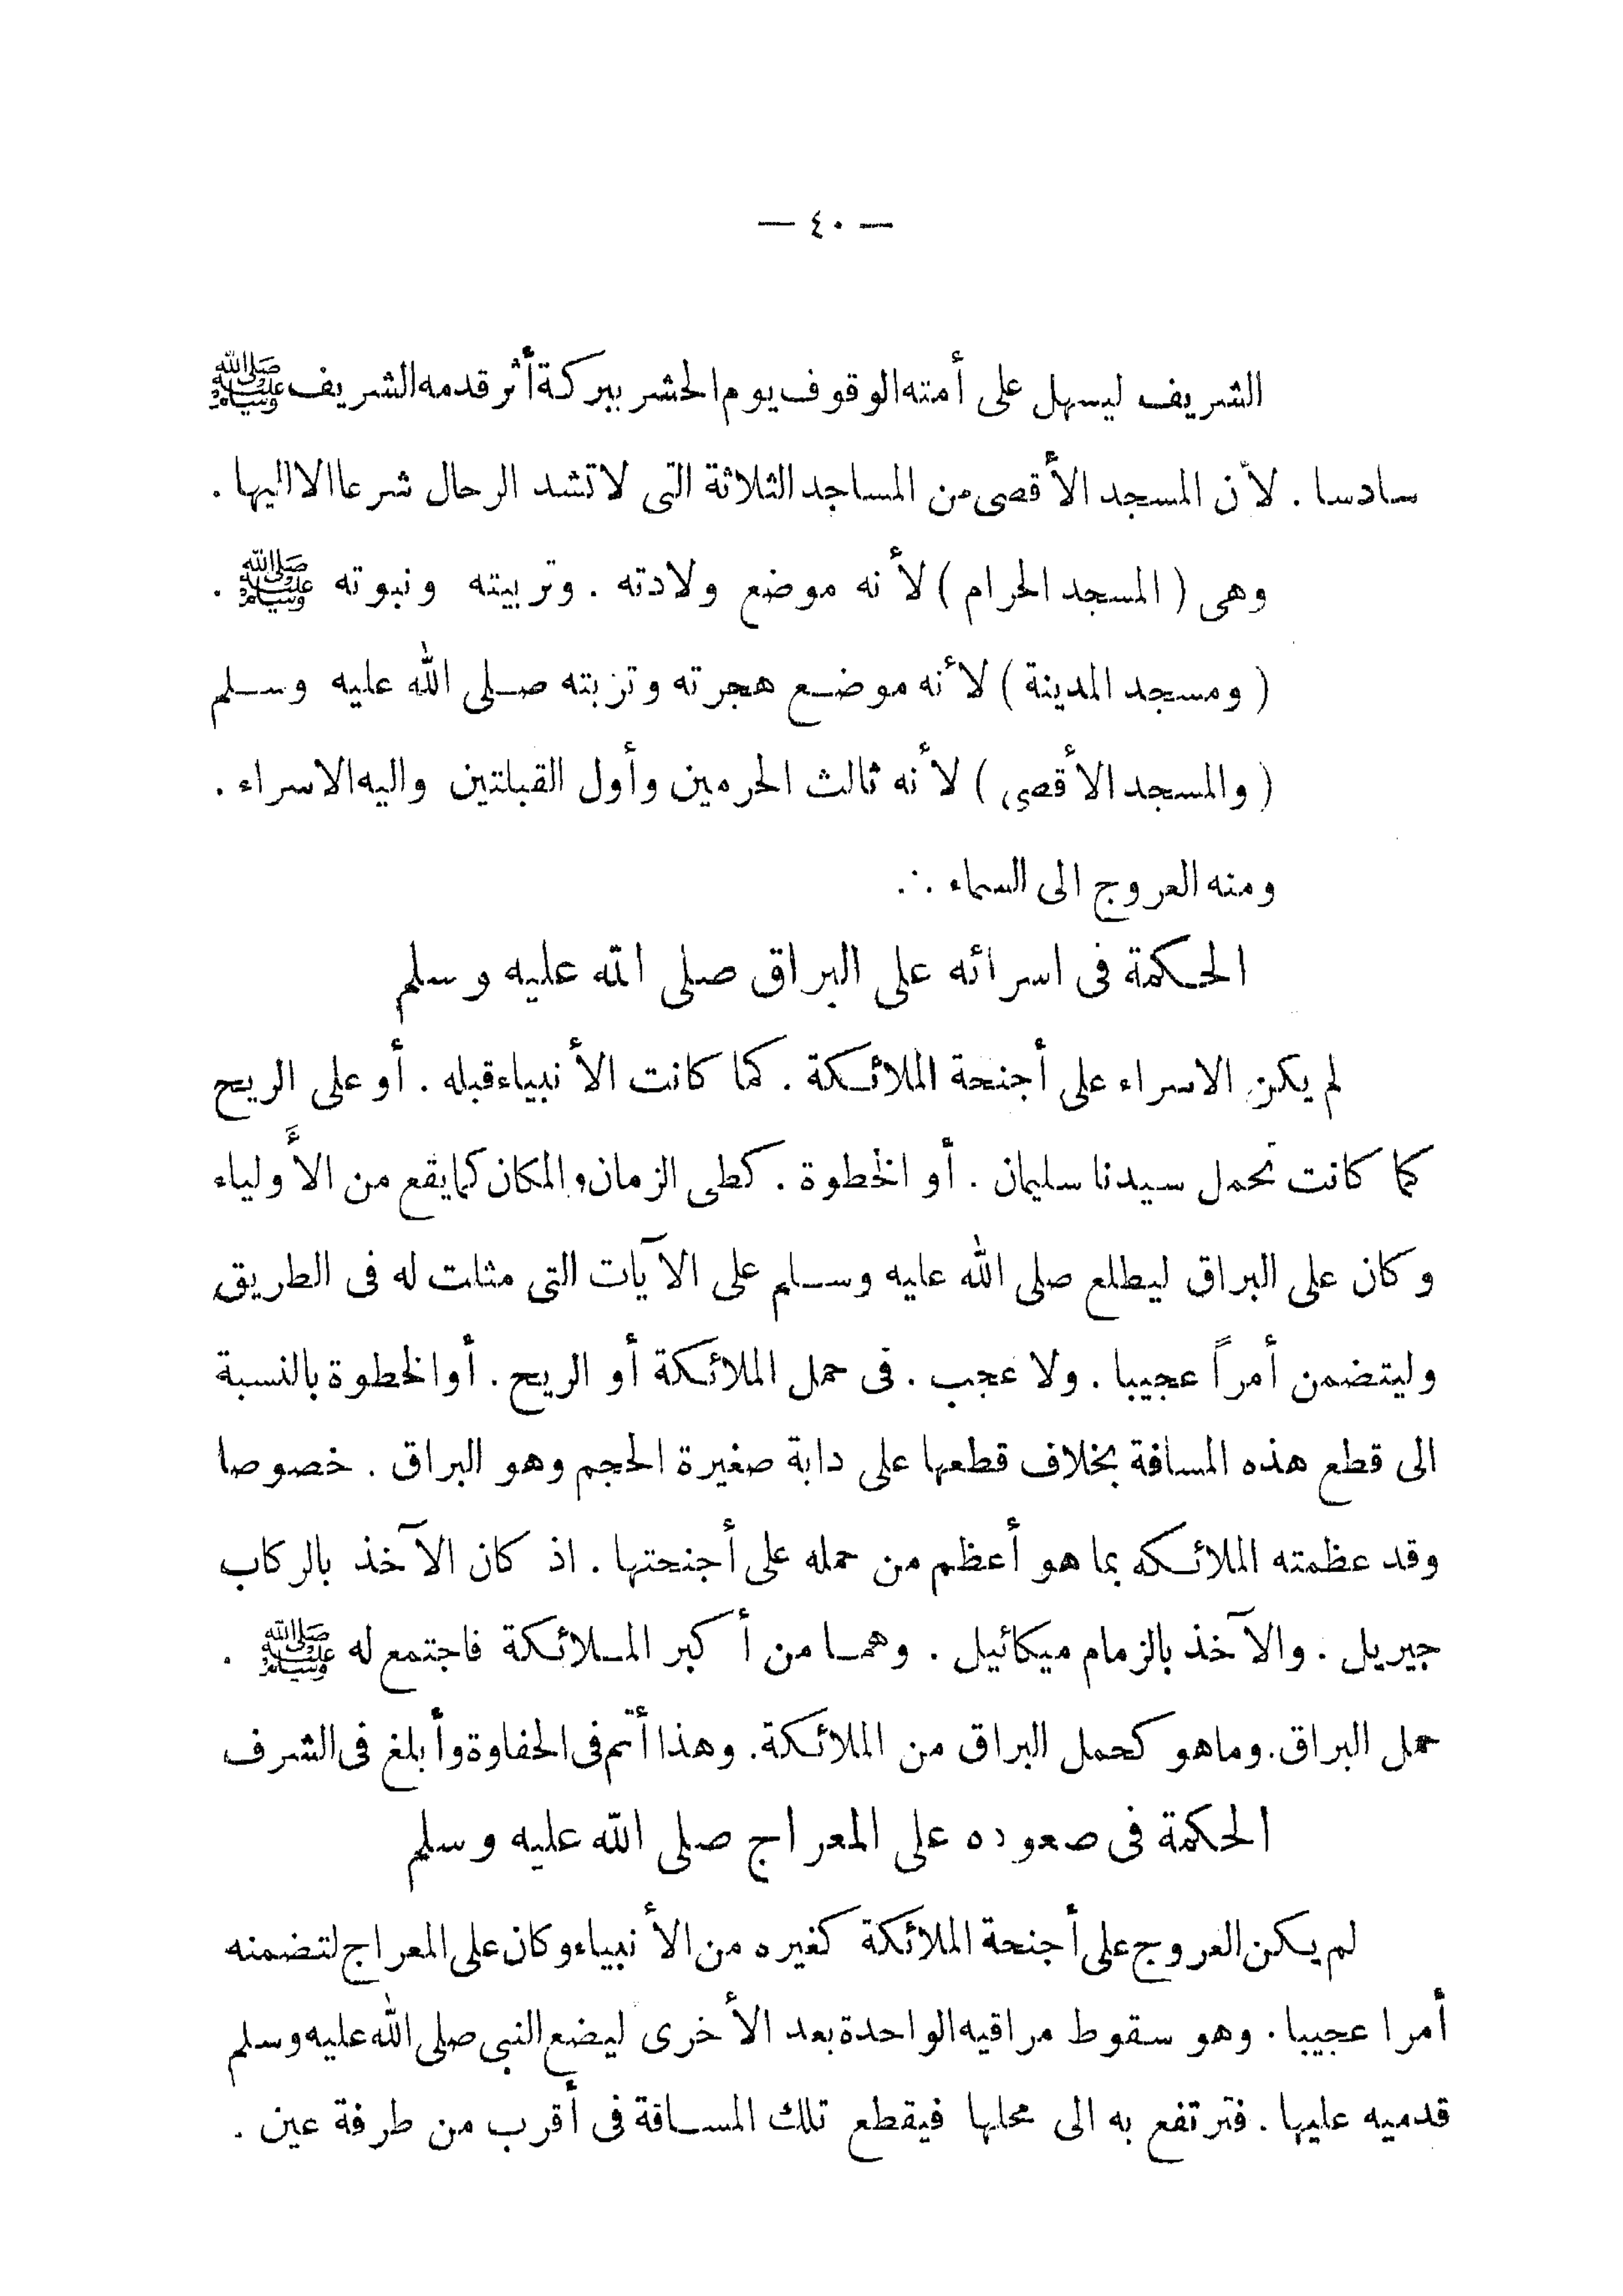 — ٤٠ —
الشريف ليسهل على أمته الوقوف يوم الحشر ببركة أثر قدمه الشريف ﷺ
سادسا . لأن المسجد الأقصى من المساجد الثلاثة التى لا تشد الرحال شرعا الا اليها .
وهى ( المسجد الحرام ) لأنه موضع ولادته . وتربيته ونبوته ﷺ .
( ومسجد المدينة ) لأنه موضع هجرته وتربته صلى الله عليه وسلم
( والمسجد الأقصى ) لأنه ثالث الحرمين وأول القبلتين واليه الاسراء .
ومنه العروج الى السماء .∙.
الحكمة فى اسرائه على البراق صلى الله عليه وسلم
لم يكن الاسراء على أجنحة الملائكة . كما كانت الأنبياء قبله . أو على الريح
كما كانت تحمل سيدنا سليمان . أو الخطوة . كطى الزمان والمكان كما يقع من الأولياء
وكان على البراق ليطلع صلى الله عليه وسلم على الآيات التى مثلت له فى الطريق
وليتضمن أمراً عجيبا . ولا عجب . فى حمل الملائكة أو الريح . أو الخطوة بالنسبة
الى قطع هذه المسافة بخلاف قطعها على دابة صغيرة الحجم وهو البراق . خصوصا
وقد عظمته الملائكه بما هو أعظم من حمله على أجنحتها . اذ كان الآخذ بالركاب
جبريل . والآخذ بالزمام ميكائيل . وهما من أكبر الملائكة فاجتمع له ﷺ .
حمل البراق . وما هو كحمل البراق من الملائكة . وهذا أتم فى الحفاوة وأبلغ فى الشرف
الحكمة فى صعوده على المعراج صلى الله عليه وسلم
لم يكن العروج على أجنحة الملائكة كغيره من الأنبياء وكان على المعراج لتضمنه
أمرا عجيبا . وهو سقوط مراقيه الواحدة بعد الأخرى ليضع النبى صلى الله عليه وسلم
قدميه عليها . فترتفع به الى محلها فيقطع تلك المسافة فى أقرب من طرفة عين .